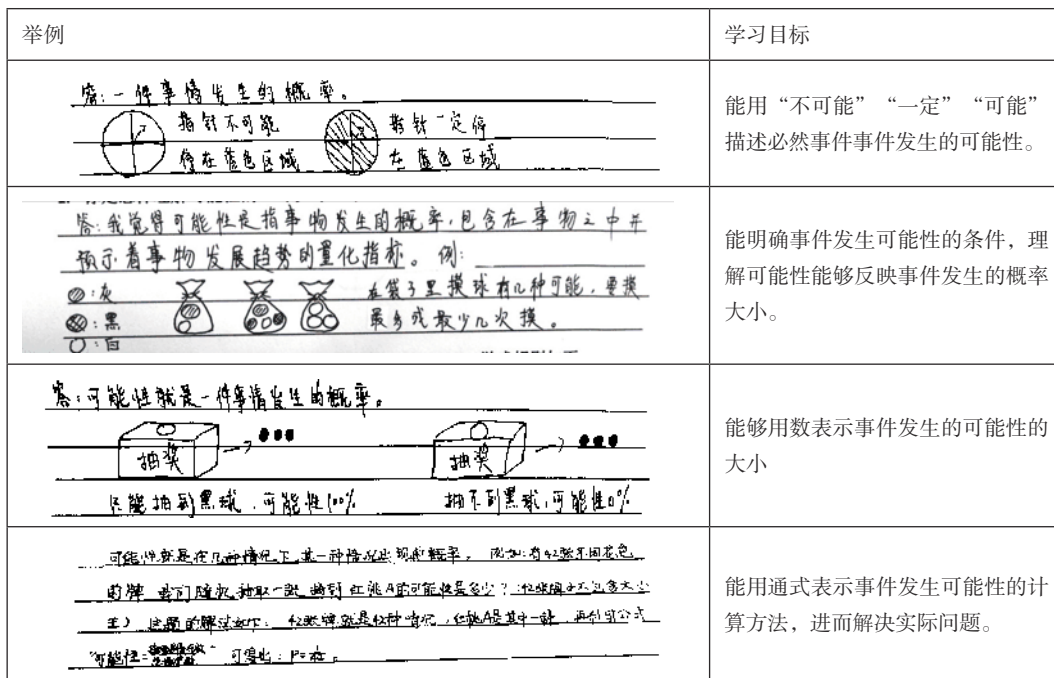 举例
学习目标
答:一件事情发生的概率。
指针不可能
停在蓝色区域
指针一定停
在蓝色区域
能用“不可能”“一定”“可能”
描述必然事件事件发生的可能性。
答:我觉得可能性是指事物发生的概率,包含在事物之中并
预示着事物发展趋势的量化指标。例:
:灰
:黑
:白
在袋子里摸球有几种可能,要摸
最多或最少几次摸。
能明确事件发生可能性的条件,理
解可能性能够反映事件发生的概率
大小。
答:可能性就是一件事情发生的概率。
抽奖
抽奖
只能抽到黑球,可能性100%
抽不到黑球,可能性0%
能够用数表示事件发生的可能性的
大小
可能性就是在几种情况下某一种情况出现的概率。例如:有42张不同花色
的牌 我们随机抽取一张 抽到红桃A的可能性是多少?(42张牌不包含大小
王)这题的解法如下:42张牌就是42种情况,红桃A是其中一种,再利用公式
“可能性= 可得出:P=
能用通式表示事件发生可能性的计
算方法,进而解决实际问题。